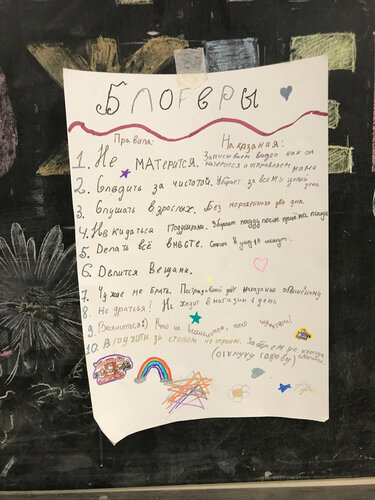 БЛОГЕРЫ
Правила: Наказания:
1. Не матерится. Записываем видео как он
матерится и отправляем маме
2. Следить за чистотой. Убирает за всеми целый
день
3. Слушать взрослых. Без мороженного два дня.
4. Не кидаться подушками. Убирает посуду после приёма пищи
5. Делать всё вместе. Стоит в углу 15 минут.
6. Делится вещами.
7. Чужое не брать. Пострадавший даёт наказание обвиняемому
8. Не драться! Не ходит в магазин 1 день
9. Веселиться:) Кто не веселится, того
10. В гаджиты за столом не играем. Заберем до конца
смены
(откручу голову)